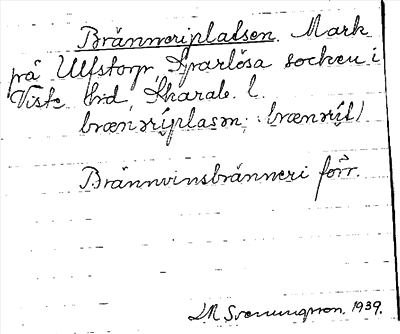 Bränneriplatsen. Mark
på Ulfstorp, Sparlösa socken i
Viste hd, Skarab. l.
brænəríplasən; brænərít)
Brännvinsbränneri förr.
J.R. Svenungsson. 1939.